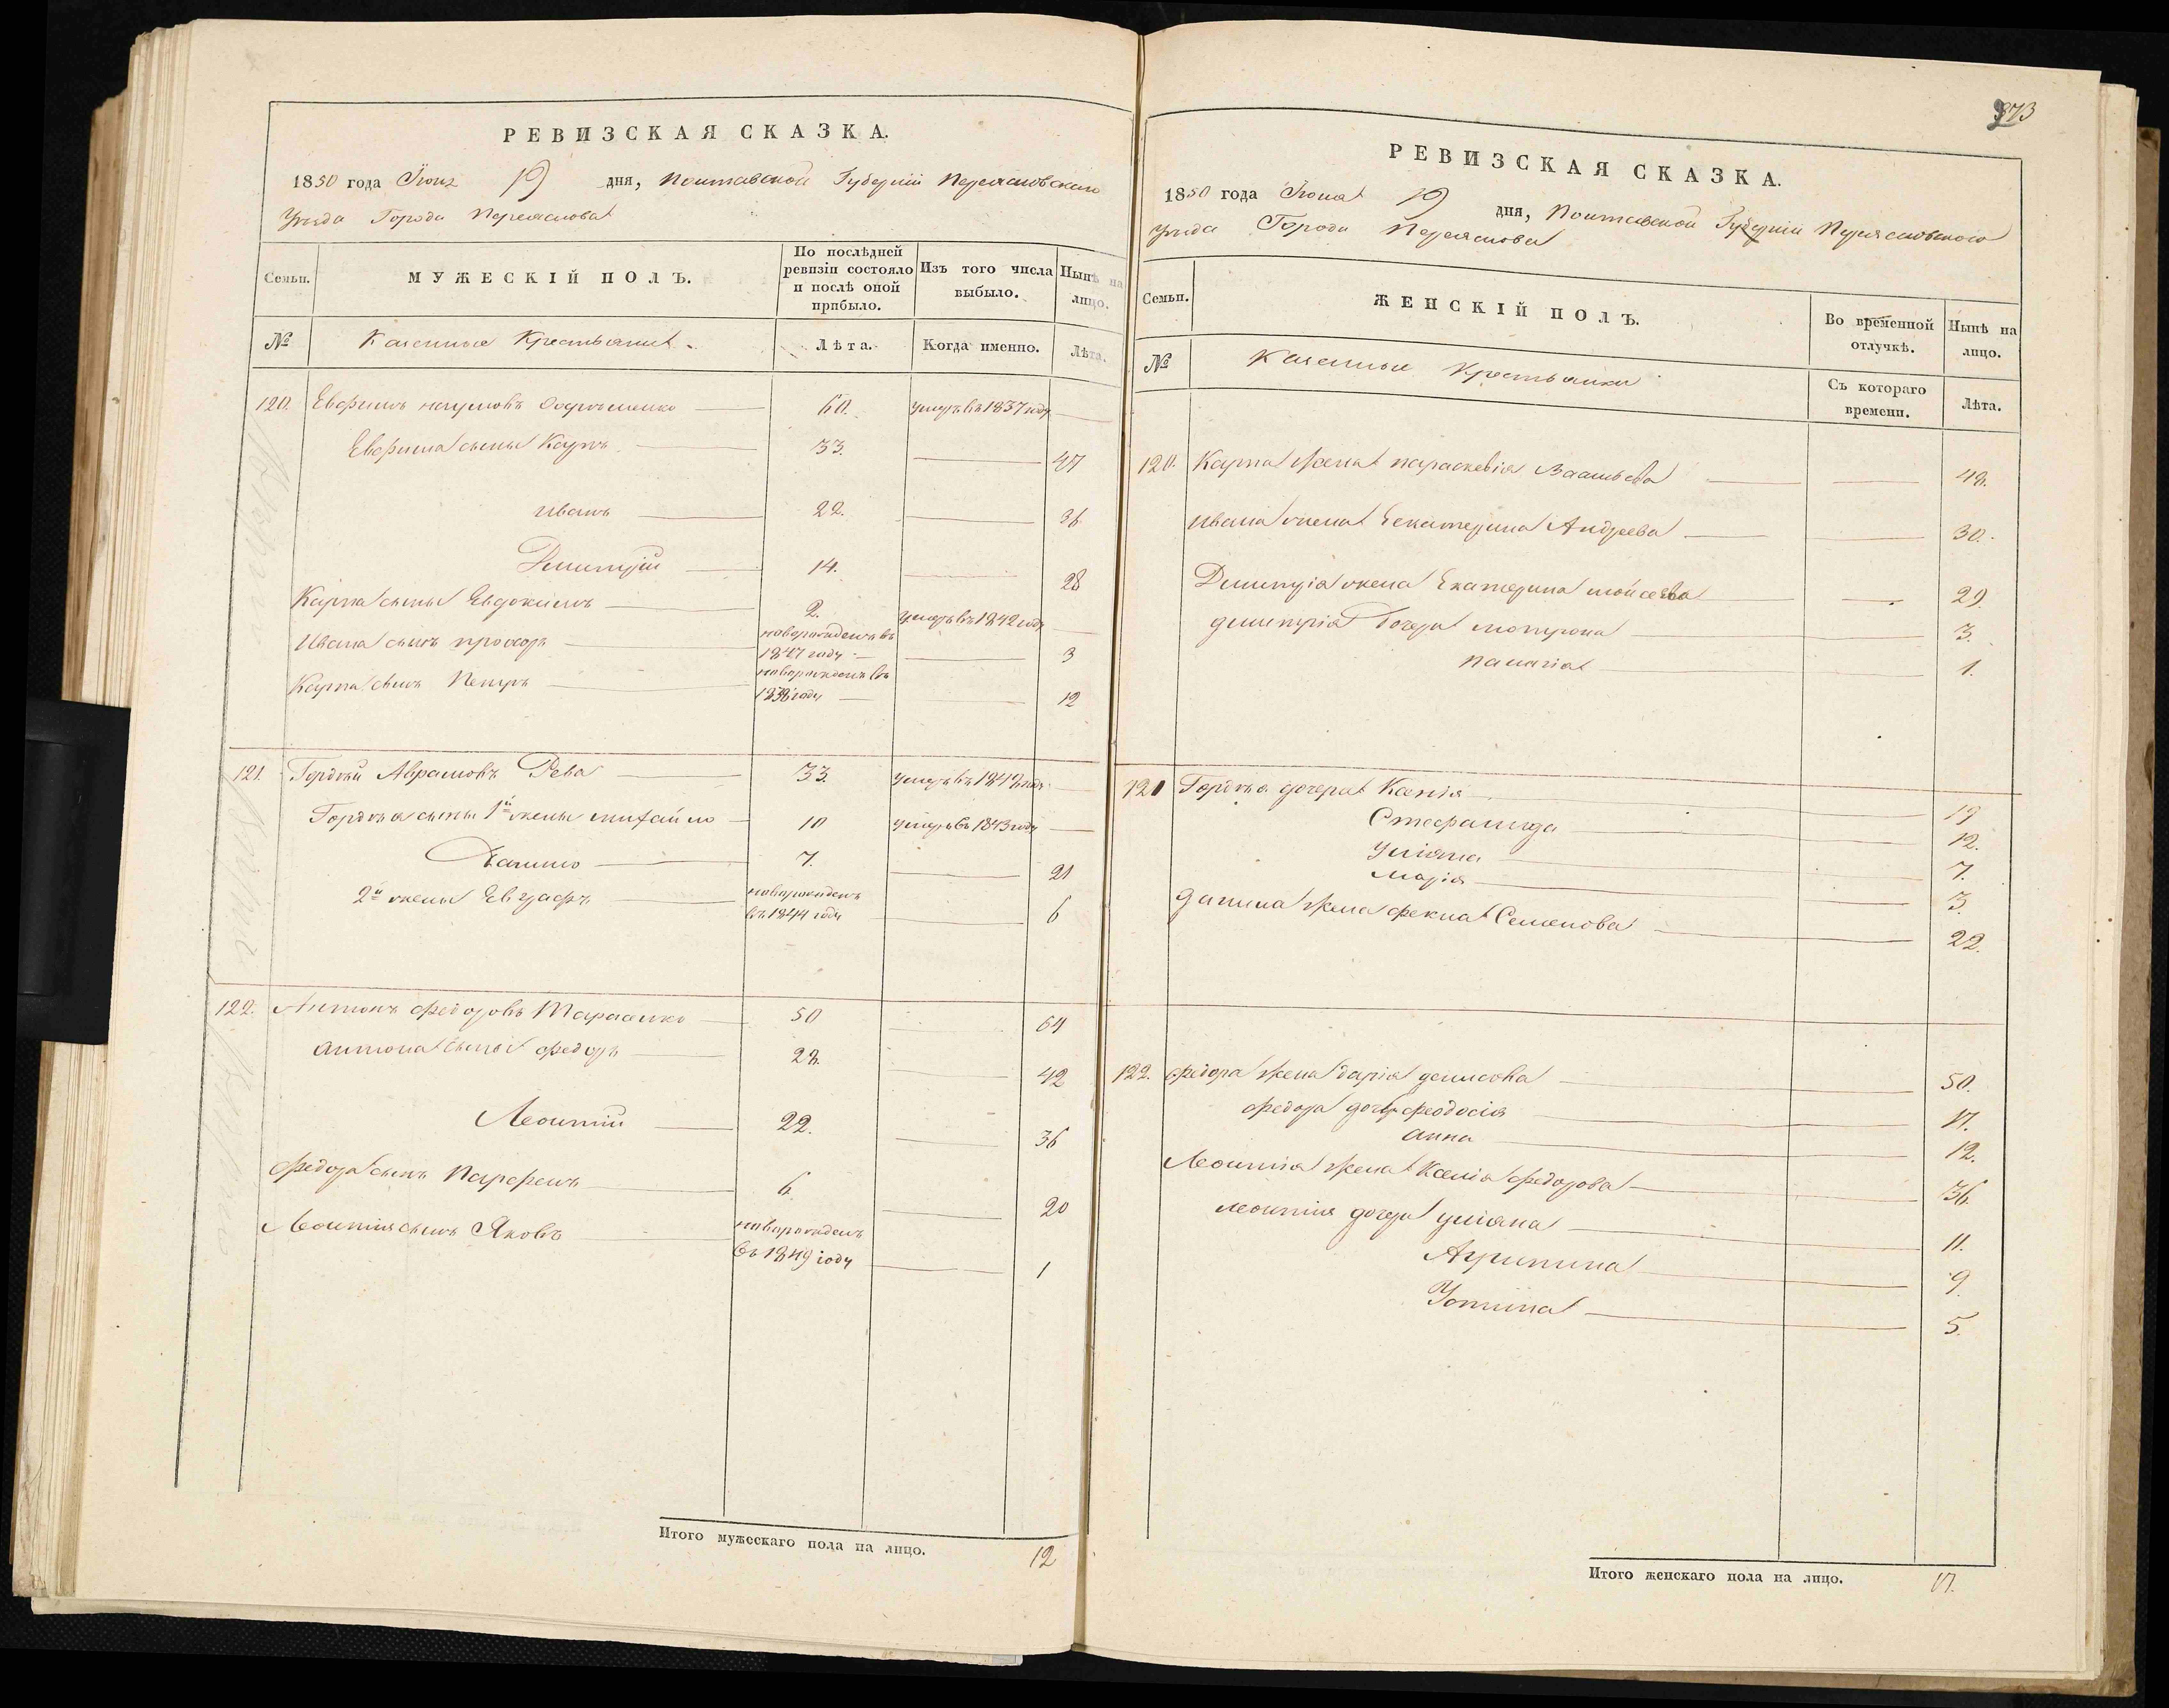 РЕВИЗСКАЯ СКАЗКА.
1850 года Июня 19 дня, Полтавской Губернии Переясловскаго
Уезда Города Переяслова
Семьи. МУЖЕСКІЙ ПОЛЪ. По послѣдней ревизіи состояло и послѣ оной прибыло. Изъ того числа выбыло. Нынѣ на лицо.
№ Казенные Крестьяне Лѣта. Когда именно. Лѣта.
120. Евфимъ наумовъ 60. умеръ въ 1837 году
Евфима сыны Карпъ 33. 47
иванъ 22. 36
Димитрій 14. 28
Карпа сыны Евдокимъ 2. умеръ въ 1842 году
Ивана сынъ прокоръ новорожденъ въ 1847 году 3
Карпа сынъ Петръ новорожденъ въ 1838 году 12
121. Гордѣй Аврамовъ Рева 33. умеръ въ 1842 году
Гордѣя сыны 1й жены михайло 10 умеръ въ 1843 году
Данило 7. 21
2й жены Евграфъ новорожденъ въ 1844 году 6
122. Антонъ федоровъ Тарасенко 50 64
антона сыны федоръ 28. 42
Леонтій 22. 36
федора сынъ Парфенъ 6. 20
Леонтія сынъ Яковъ новорожденъ въ 1849 году 1
Итого мужескаго пола на лицо. 12
373
РЕВИЗСКАЯ СКАЗКА.
1850 года Июня 19 дня, Полтавской Губерніи Переясловскаго
уезда Города Переяслова
Семьи. ЖЕНСКІЙ ПОЛЪ. Во временной отлучкѣ. Нынѣ на лицо.
№ Казенные Крестьянки Съ котораго времени. Лѣта.
120. Карпа жена параскевія Васильева 48.
ивана жена Екатерина Андреева 30.
Димитрія жена Екатерина мойсеева 29.
димитрія дочери мотрона 3.
палагія 1.
121 Гордѣя дочери Ксенія 19
Стефанида 12.
уліяна 7.
марія 3.
данила жена фекла Семенова 22.
122. федора жена дарія денисова 50.
федора дочери феодосія 17.
анна 12.
Леонтія жена Ксенія федорова 36.
леонтія дочери уліяна 11.
Агрипина 9.
Устина 5.
Итого женскаго пола на лицо. 17.